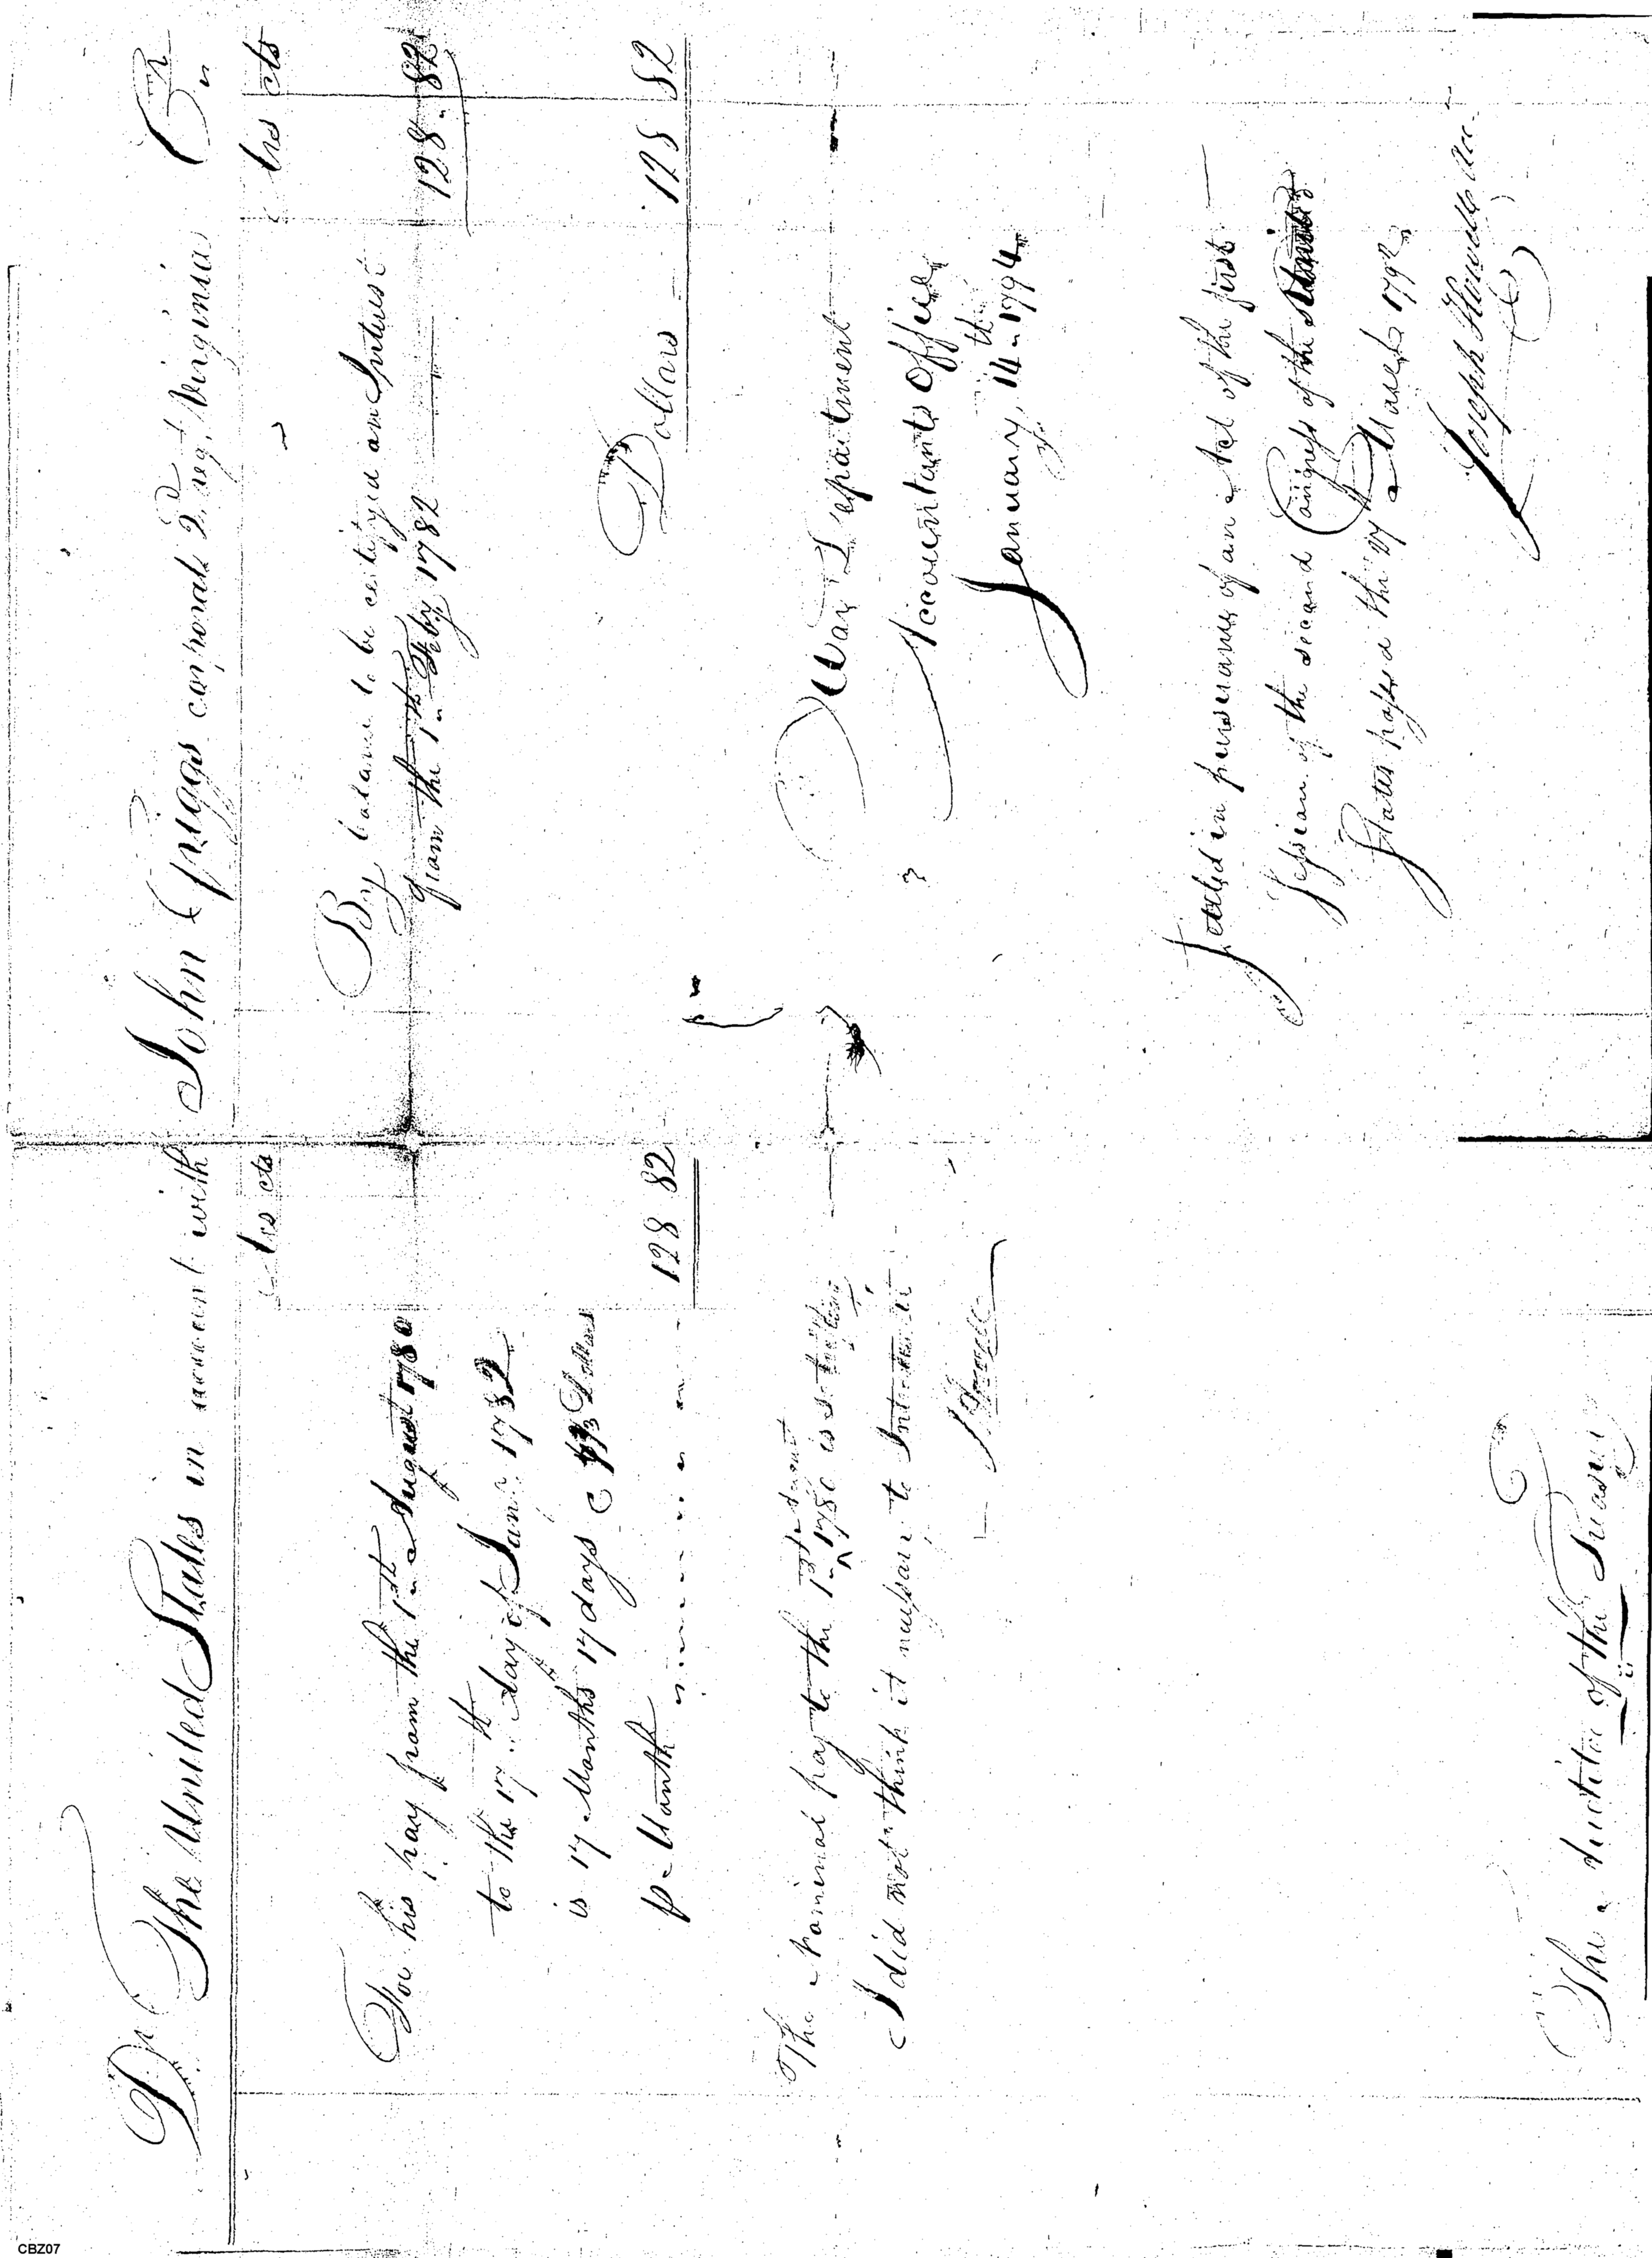 Dr The United States in account with John Griggs corporal 2d regt Virginia Cr
Drs cts
For his pay from the 1st August 1780
to the 17th day of Jany 1782
is 17 Months 17 days @ 7 1/3 Dollars
pr Month 128 82
The Nominal pay to the 1st August 1780 is settled
I did not think it necessary to
J Howell
The Auditor of the Treasury
Drs cts
By balance to be certifyed and Interest
from the 1st Feby 1782 128 82
Dollars 128 82
War Department
Accountants Office
January 14th 1794
Settled in pursuance of an Act of the first
Session of the second Congress of the United
States passed the 27 March 1792
Joseph Howell Acc
CBZ07